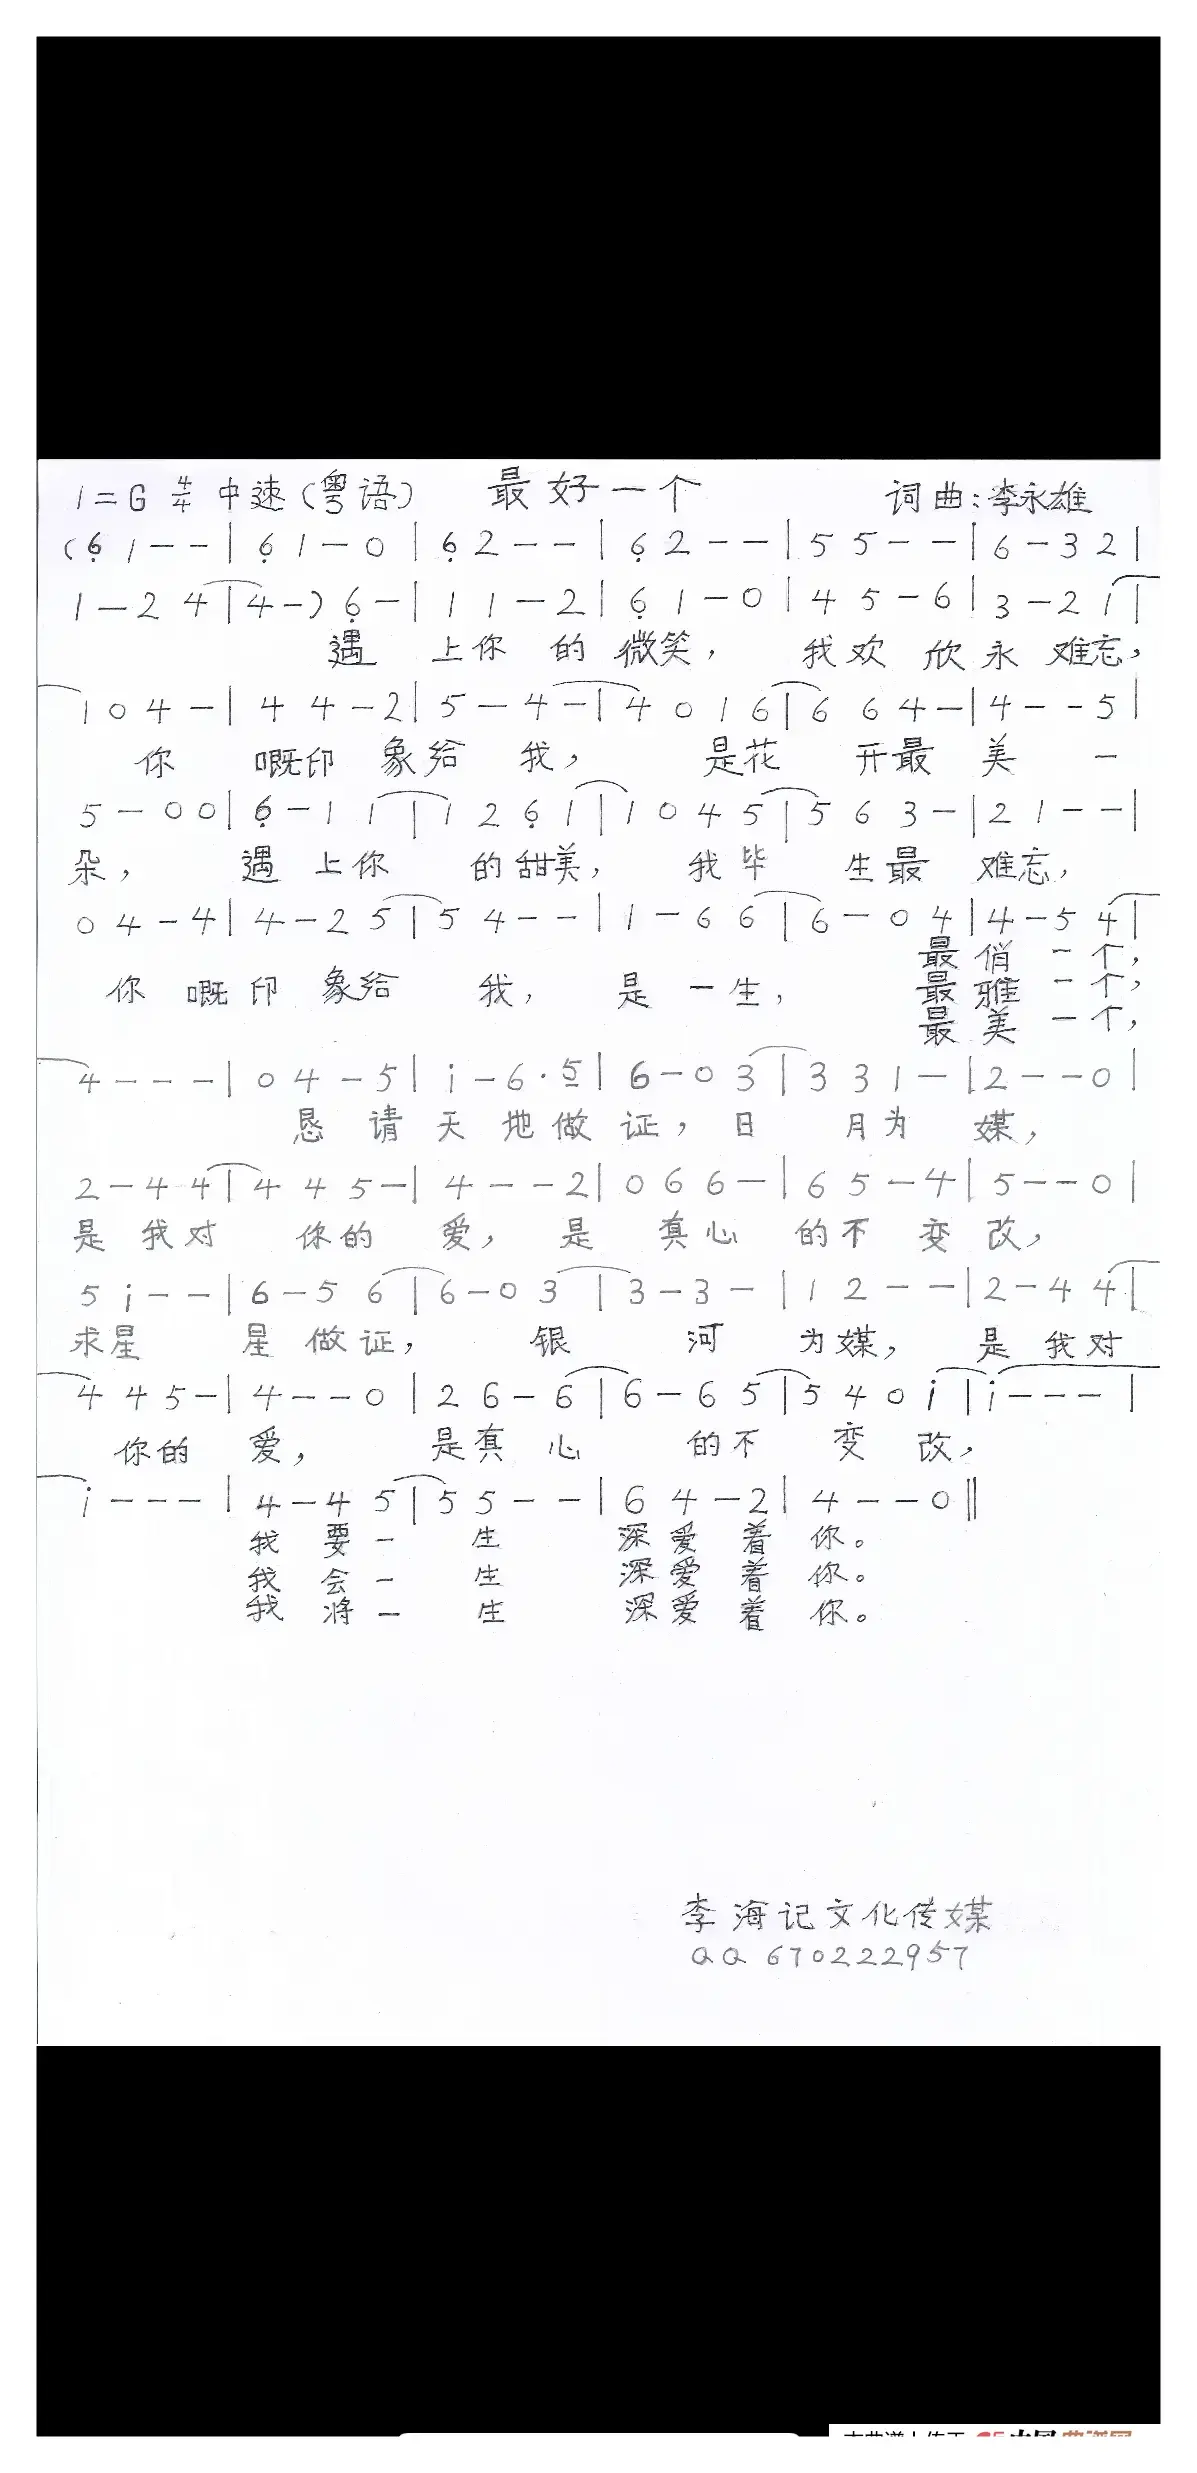 1=G 4/4 中速(粤语) 最好一个 词曲:李永雄
(6̣ 1 - - | 6̣ 1 - 0 | 6̣ 2 - - | 6̣ 2 - - | 5 5 - - | 6 - 3 2 |
1 - 2 4 | 4 - ) 6̣ - | 1 1 - 2 | 6̣ 1 - 0 | 4 5 - 6 | 3 - 2 1 |
遇 上你 的 微笑, 我欢 欣永 难忘,
1 0 4 - | 4 4 - 2 | 5 - 4 - | 4 0 1 6 | 6 6 4 - | 4 - - 5 |
你 嘅印 象给 我, 是花 开最 美 一
5 - 0 0 | 6̣ - 1 1 | 1 2 6̣ 1 | 1 0 4 5 | 5 6 3 - | 2 1 - - |
朵, 遇 上你 的甜美, 我毕 生最 难忘,
0 4 - 4 | 4 - 2 5 | 5 4 - - | 1 - 6 6 | 6 - 0 4 | 4 - 5 4 |
最 俏 一 个,
你 嘅 印 象给 我, 是 一 生, 最 雅 一 个,
最 美 一 个,
4 - - - | 0 4 - 5 | i - 6 · 5 | 6 - 0 3 | 3 3 1 - | 2 - - 0 |
恳 请 天 地 做 证, 日 月为 媒,
2 - 4 4 | 4 4 5 - | 4 - - 2 | 0 6 6 - | 6 5 - 4 | 5 - - 0 |
是 我 对 你的 爱, 是 真心 的不 变 改,
5 i - - | 6 - 5 6 | 6 - 0 3 | 3 - 3 - | 1 2 - - | 2 - 4 4 |
求星 星 做 证, 银 河 为媒, 是 我 对
4 4 5 - | 4 - - 0 | 2 6 - 6 | 6 - 6 5 | 5 4 0 i | i - - - |
你的 爱, 是真 心 的不 变 改,
i - - - | 4 - 4 5 | 5 5 - - | 6 4 - 2 | 4 - - 0 ‖
我 要 一 生 深爱 着 你。
我 会 一 生 深爱 着 你。
我 将 一 生 深爱 着 你。
李海记文化传媒
QQ 670222957